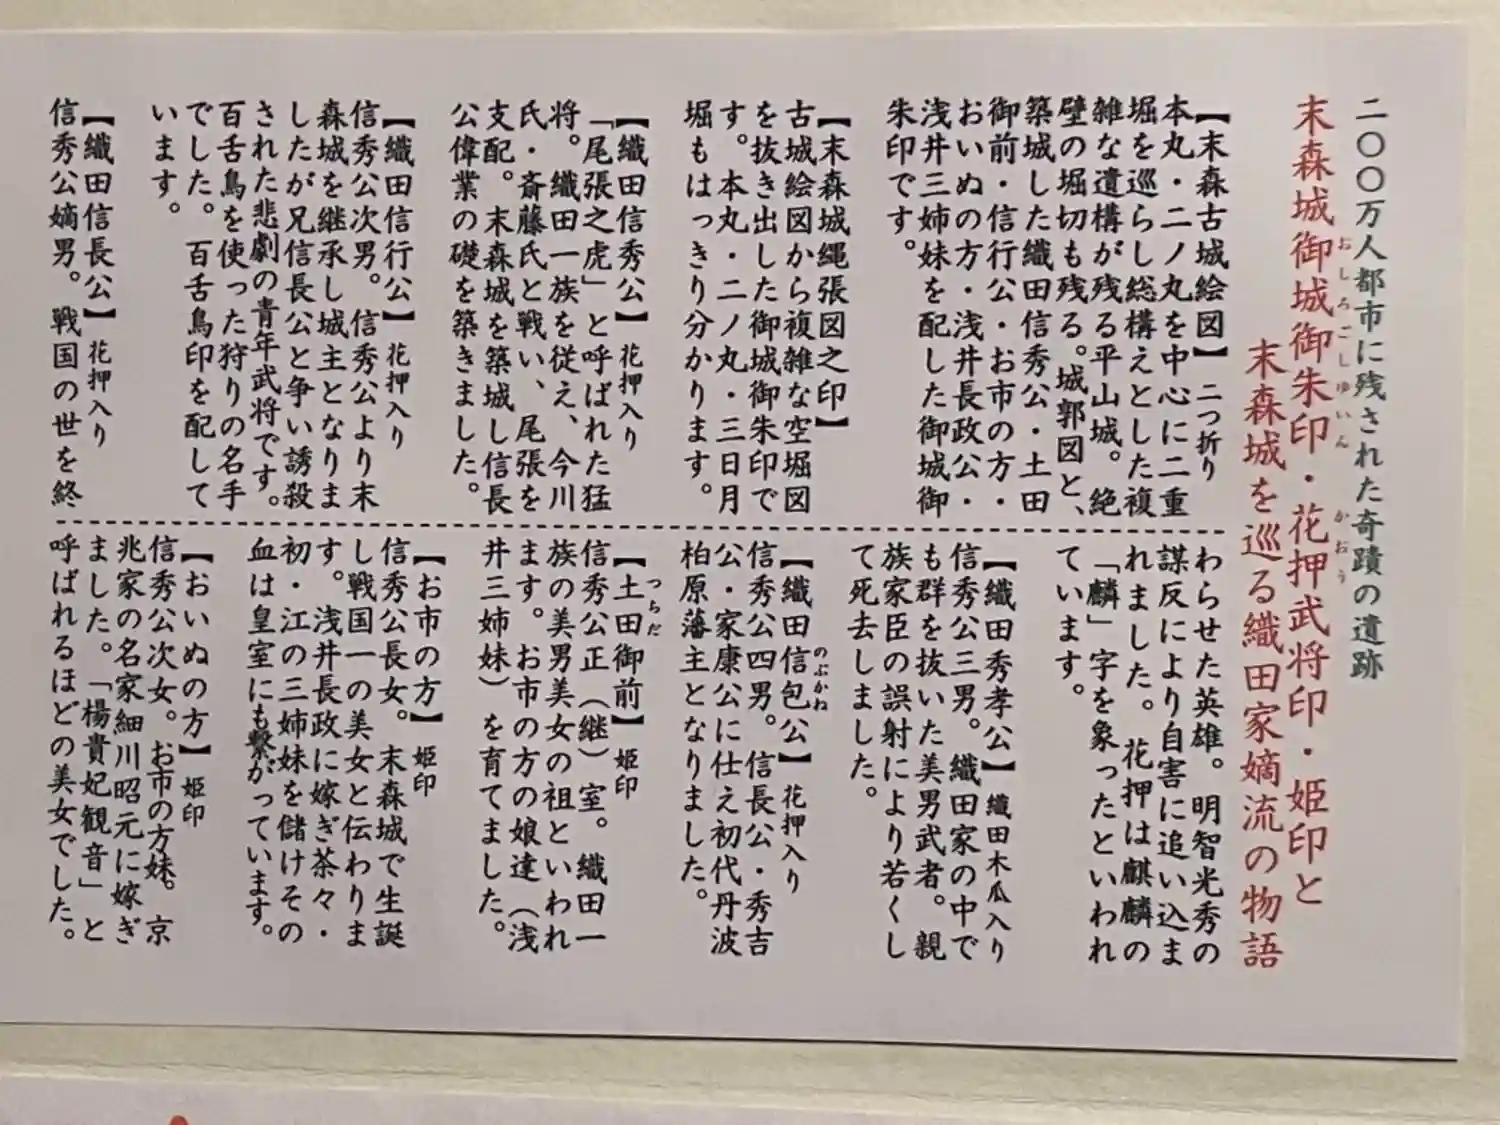 二〇〇万人都市に残された奇蹟の遺跡
末森城御城御朱印・花押武将印・姫印と
おしろごしゅいん
かおう
末森城を巡る織田家嫡流の物語
【末森古城絵図】二つ折り
本丸・二ノ丸を中心に二重
堀を巡らし総構えとした複
雑な遺構が残る平山城。絶
壁の堀切も残る。城郭図と、
築城した織田信秀公・土田
御前・信行公・お市の方・
おいぬの方・浅井長政公・
浅井三姉妹を配した御城御
朱印です。
【末森城縄張図之印】
古城絵図から複雑な空堀図
を抜き出した御城御朱印で
す。本丸・二ノ丸・三日月
堀もはっきり分かります。
【織田信秀公】花押入り
「尾張之虎」と呼ばれた猛
将。織田一族を従え、今川
氏・斎藤氏と戦い、尾張を
支配。末森城を築城し信長
公偉業の礎を築きました。
【織田信行公】花押入り
信秀公次男。信秀公より末
森城を継承し城主となりま
したが兄信長公と争い誘殺
された悲劇の青年武将です。
百舌鳥を使った狩りの名手
でした。百舌鳥印を配して
います。
【織田信長公】花押入り
信秀公嫡男。戦国の世を終
わらせた英雄。明智光秀の
謀反により自害に追い込ま
れました。花押は麒麟の
「麟」字を象ったといわれ
ています。
【織田秀孝公】織田木瓜入り
信秀公三男。織田家の中で
も群を抜いた美男武者。親
族家臣の誤射により若くし
て死去しました。
【織田信包公】花押入り
のぶかね
信秀公四男。信長公・秀吉
公・家康公に仕え初代丹波
柏原藩主となりました。
【土田御前】姫印
つちだ
信秀公正（継）室。織田一
族の美男美女の祖といわれ
ます。お市の方の娘達（浅
井三姉妹）を育てました。
【お市の方】姫印
信秀公長女。末森城で生誕
し戦国一の美女と伝わりま
す。浅井長政に嫁ぎ茶々・
初・江の三姉妹を儲けその
血は皇室にも繋がっています。
【おいぬの方】姫印
信秀公次女。お市の方妹。京
兆家の名家細川昭元に嫁ぎ
ました。「楊貴妃観音」と
呼ばれるほどの美女でした。